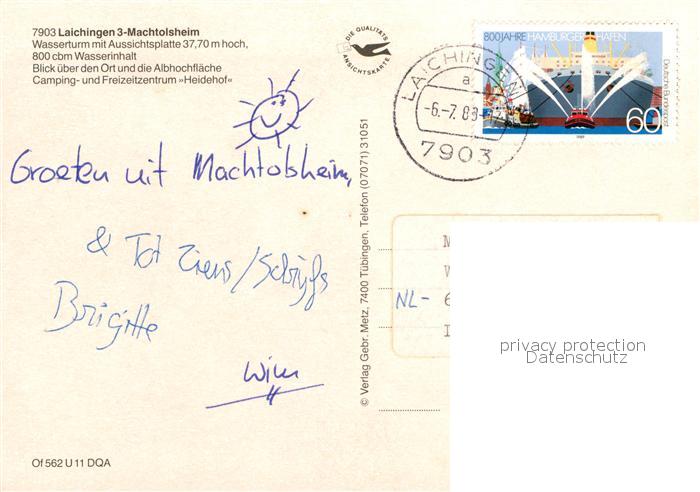 7903 Laichingen 3-Machtolsheim
Wasserturm mit Aussichtsplatte 37,70 m hoch,
800 cbm Wasserinhalt
Blick über den Ort und die Albhochfläche
Camping- und Freizeitzentrum »Heidehof«
DIE QUALITÄTS
ANSICHTSKARTE
LAICHINGEN
a
-6.-7.89-
7903
800 JAHRE HAMBURGER HAFEN
Deutsche Bundespost
60
1989
Groeten uit Machtolsheim,
& Tot Ziens/Schrijfs
Brigitte
Wim
© Verlag Gebr. Metz, 7400 Tübingen, Telefon (07071) 31051
NL- 6
privacy protection
Datenschutz
Of 562 U 11 DQA